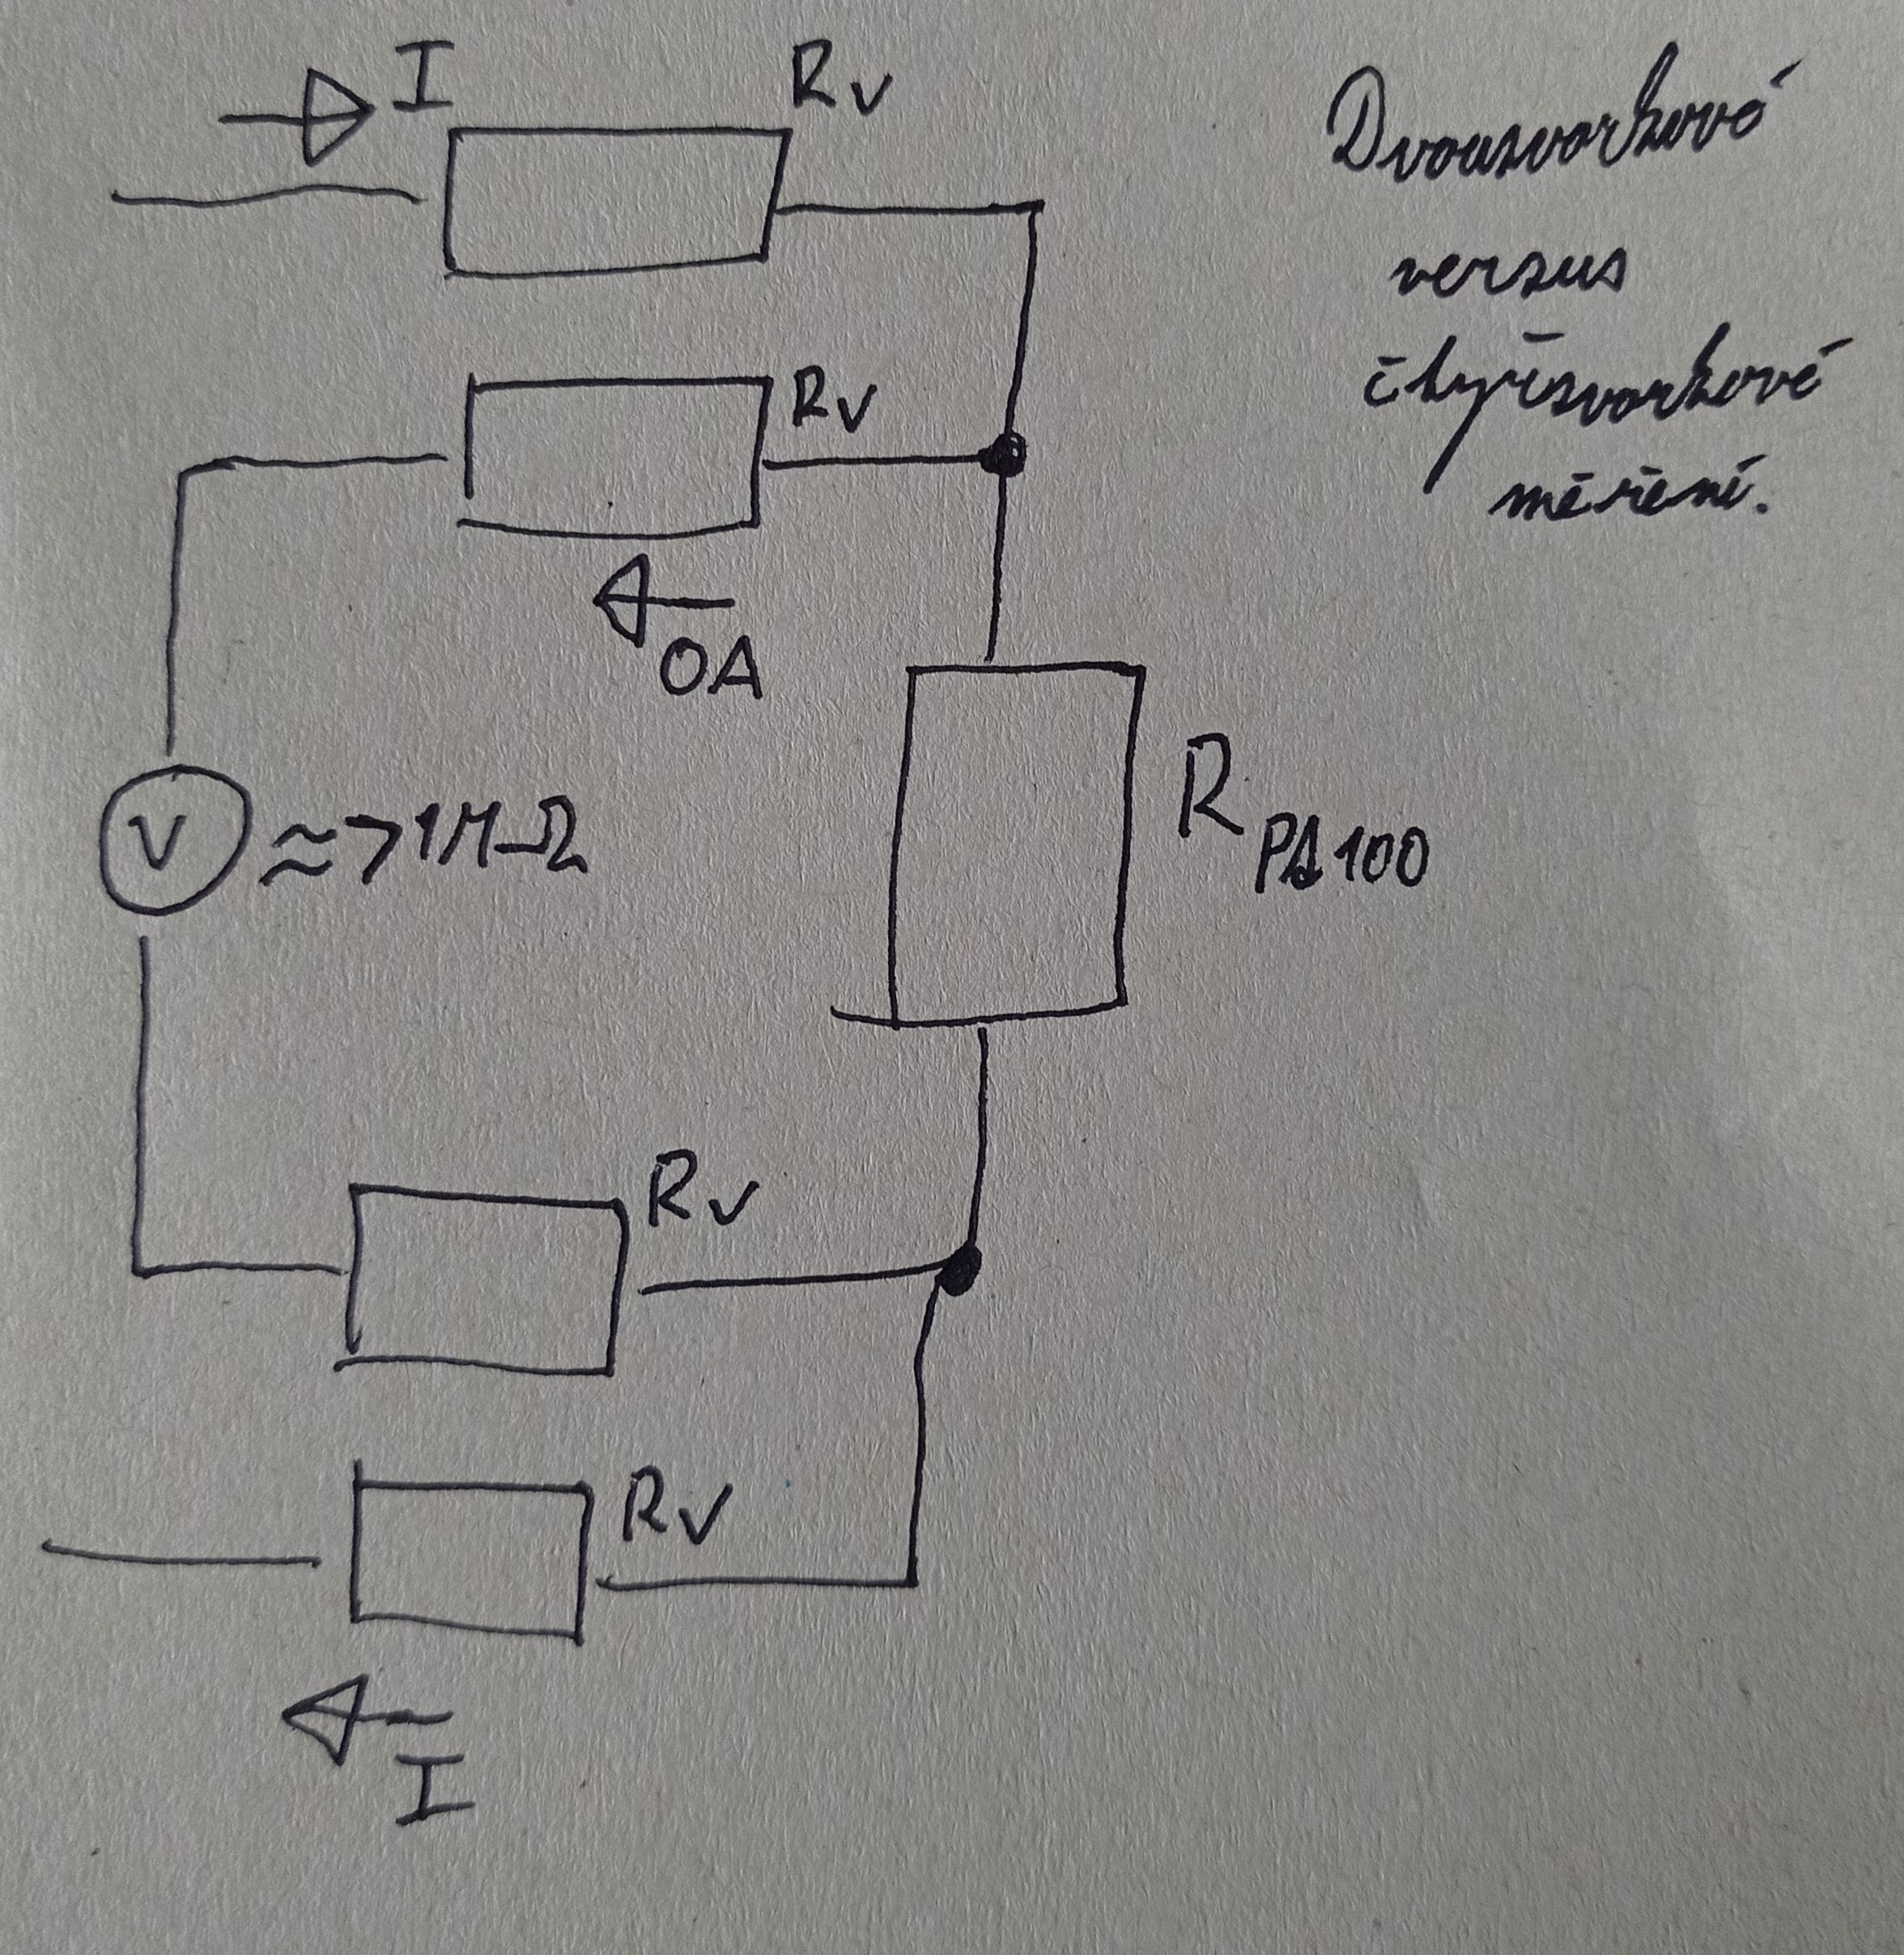 I
Rv
Dvousvorkové
versus
čtyřsvorkové
měření.
Rv
0A
V
≈>1MΩ
R PA100
Rv
Rv
I